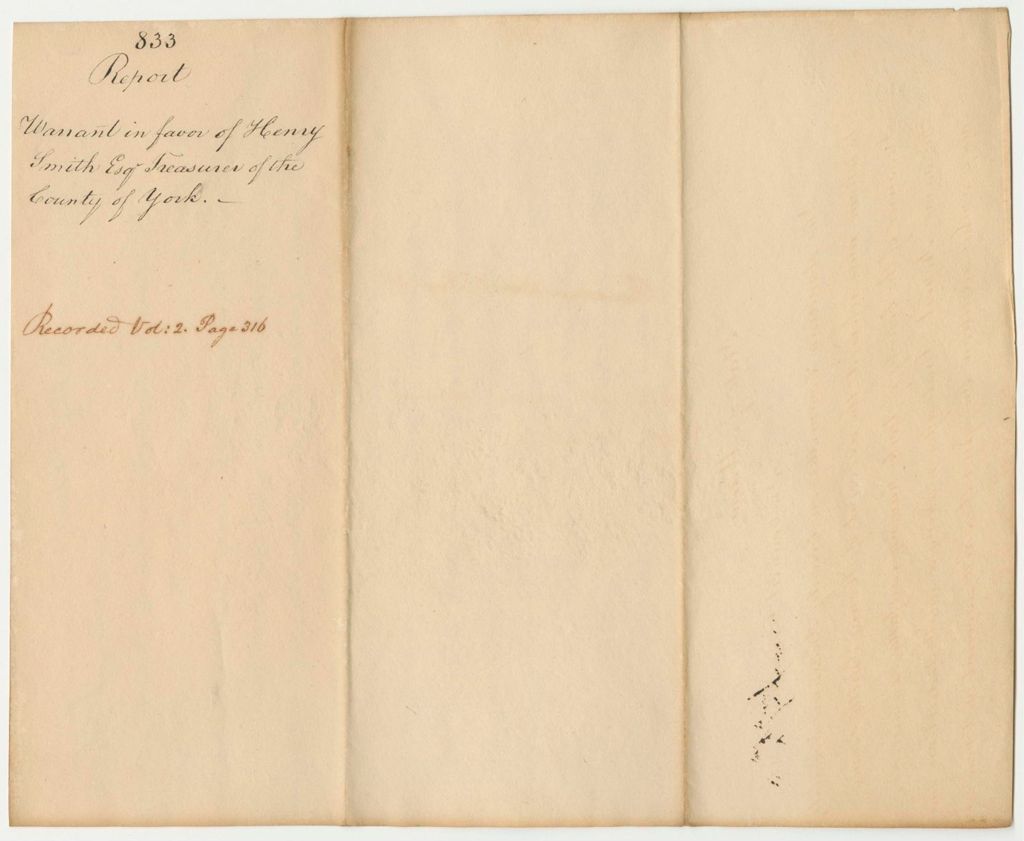 833
Report
Warrant in favor of Henry
Smith Esqr Treasurer of the
County of York. –
Recorded Vol: 2. Page 316